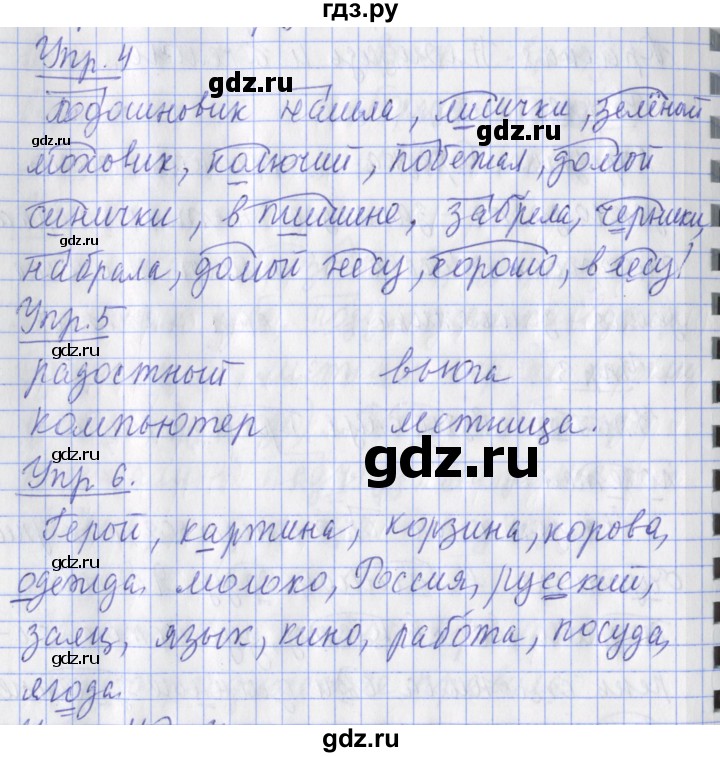 гдз.ру
Упр. 4
gdz.ru
Подошновик нашла, лисички, зелёный
gdz.ru
моховик, колючий, побежал, домой
gdz.ru
синички, в тишине, забрела, черники,
gdz.ru
набрала, домой несу, хорошо, в лесу!
Упр. 5
gdz.ru
радостный вьюга
компьютер лестница.
gdz.ru
gdz.ru
Упр 6.
Герой, картина, корзина, корова,
gdz.ru
одежда, молоко, Россия, русский,
заяц, язык, кино, работа, посуда,
gdz.ru
ягода.
gdz.ru gdz.ru